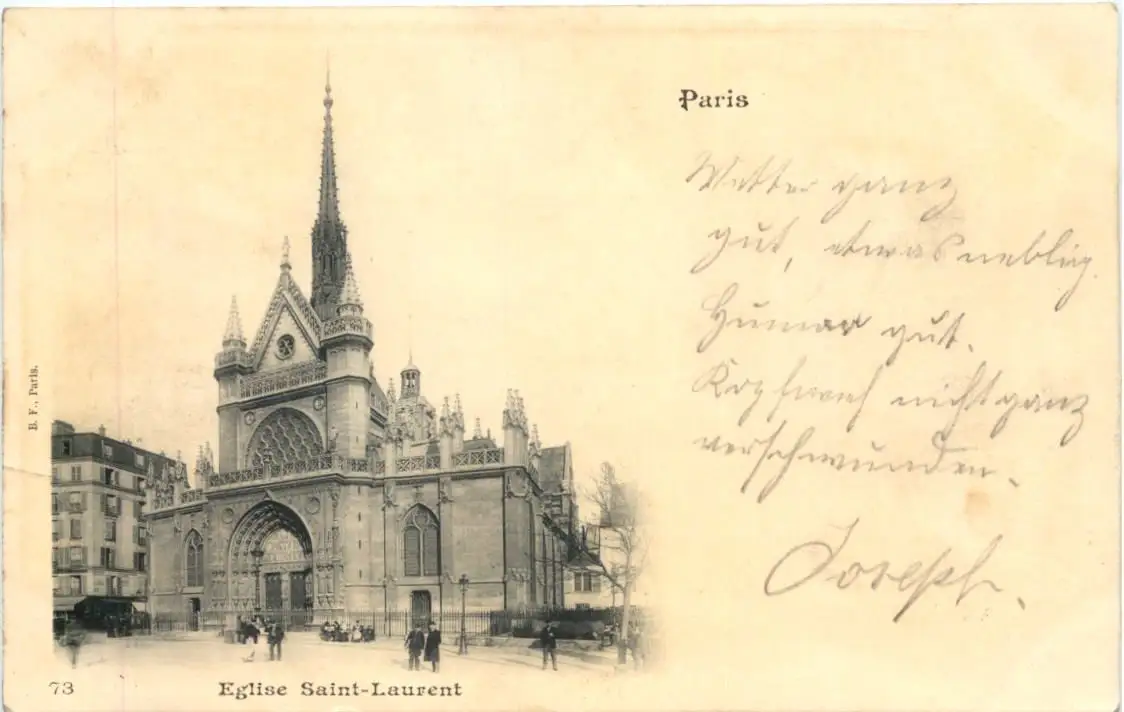 Paris
Wetter ganz
gut, etwas neblig.
Humor gut.
Kopfweh nicht ganz
verschwunden.
Joseph.
B. F., Paris.
73
Eglise Saint-Laurent